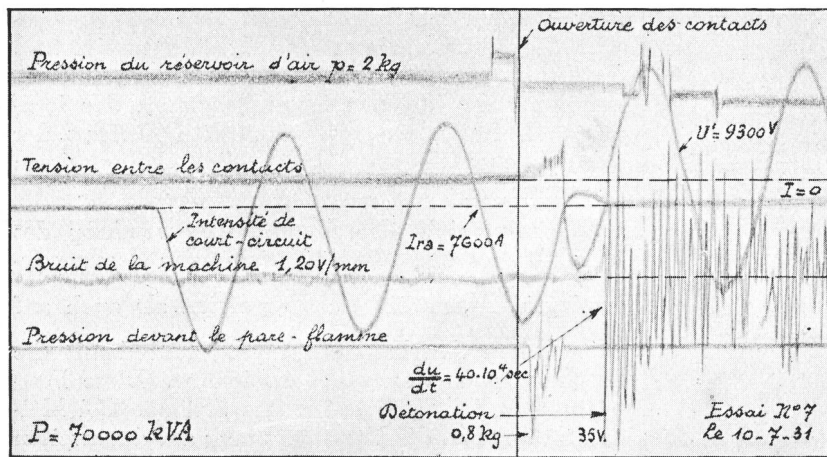 Ouverture des contacts
Pression du réservoir d'air p= 2 kg
U'= 9300 V
Tension entre les contacts
I=0
Intensité de
court-circuit
Ira= 7600A
Bruit de la machine 1,20V/mm
Pression devant le pare-flamme
du/dt = 40.10⁴/sec
Détonation
0,8 kg
35V.
P= 70000 kVA
Essai N°7
Le 10-7-31